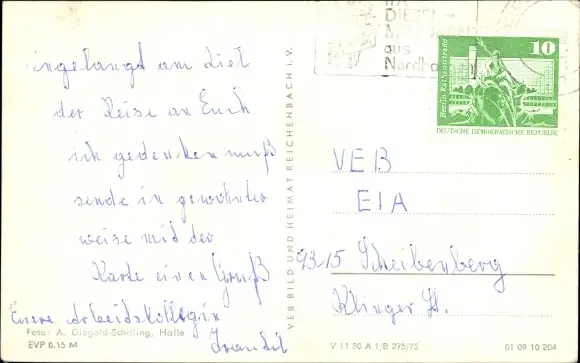 ingelangt am Ziel
der Reise an Euch
ich gedenken muß
sende in gewohnter
weise mit der
Karte einen Gruß
Eure Arbeitskollegin
Foto: A. Giegold-Schilling, Halle
EVP 0.15 M
VEB BILD UND HEIMAT REICHENBACH i. V.
DIESEL-
aus
Nordhausen
10
Berlin-Rathausstraße
DEUTSCHE DEMOKRATISCHE REPUBLIK
VEB
EIA
9315 Scheibenberg
Klinger St.
V 11 50 A 1/B 275/75 01 09 10 204